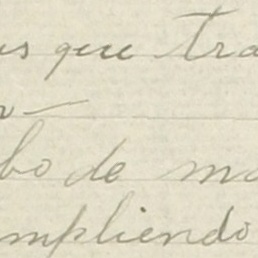 us que tra
r
bo de ma
mpliendo